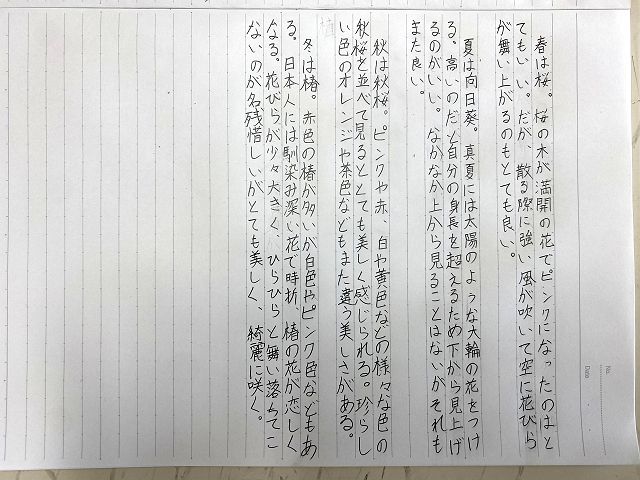 春は桜。桜の木が満開の花でピンクになったのはと
てもいい。だが、散る際に強い風が吹いて空に花びら
が舞い上がるのもとても良い。
夏は向日葵。真夏には太陽のような大輪の花をつけ
る。高いのだと自分の身長を超えるため下から見上げ
るのがいい。なかなか上から見ることはないがそれも
また良い。
秋は秋桜。ピンクや赤、白や黄色などの様々な色の
秋桜を並べて見るととても美しく感じられる。珍らし
い色のオレンジや茶色などもまた違う美しさがある。
冬は椿。赤色の椿が多いが白色やピンク色などもあ
る。日本人には馴染み深い花で時折、椿の花が恋しく
なる。花びらが少々大きく、ひらひらと舞い落ちてこ
ないのが名残惜しいがとても美しく、綺麗に咲く。
No.
Date